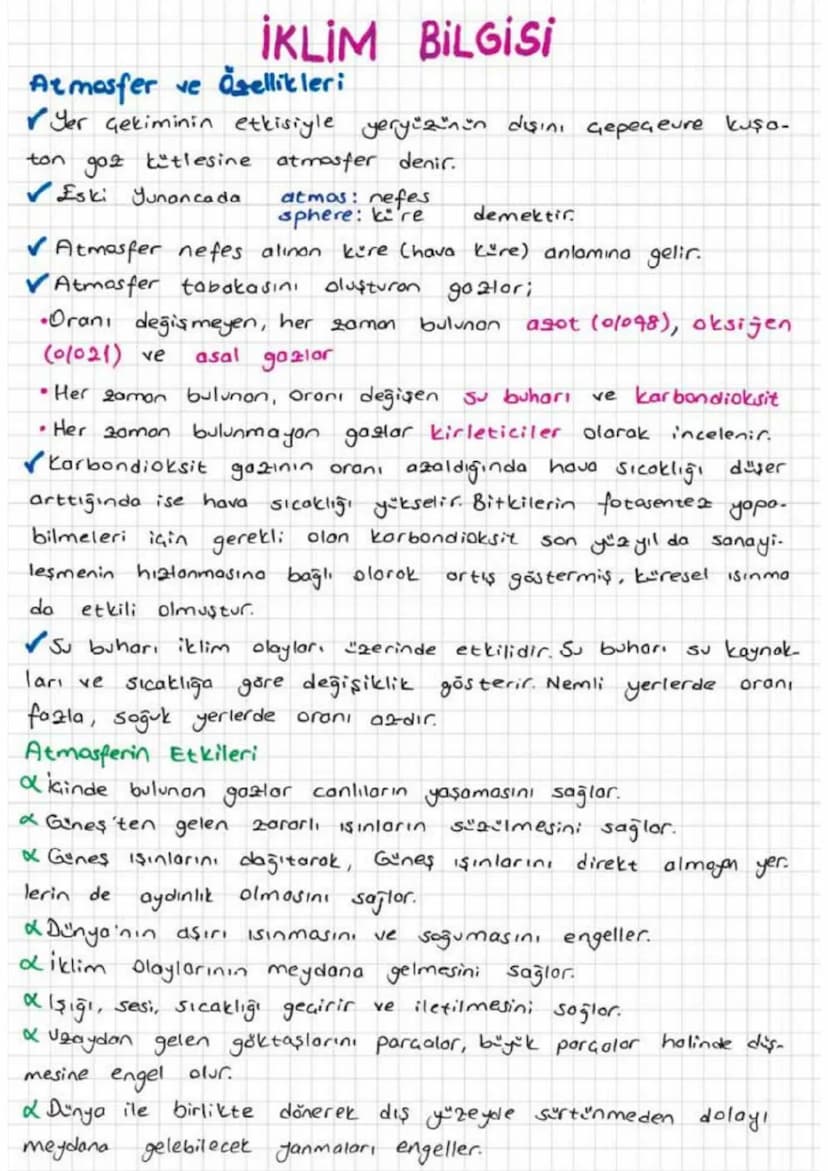 İKLİM BİLGİSİ
Atmosfer ve Özellikleri
✓ Yer çekiminin etkisiyle yeryüzünün dışını çepeçevre kuşa-
tan gaz kütlesine atmosfer denir.
✓ Eski Yunancada atmos: nefes
sphere: küre demektir.
✓ Atmosfer nefes alınan küre (hava küre) anlamına gelir.
✓ Atmosfer tabakasını oluşturan gazlar;
• Oranı değişmeyen, her zaman bulunan azot (%98), oksijen
(%21) ve asal gazlar
• Her zaman bulunan, oranı değişen su buharı ve karbondioksit
• Her zaman bulunmayan gazlar kirleticiler olarak incelenir.
✓ Karbondioksit gazının oranı azaldığında hava sıcaklığı düşer
arttığında ise hava sıcaklığı yükselir. Bitkilerin fotosentez yapa-
bilmeleri için gerekli olan karbondioksit son yüzyıl da sanayi-
leşmenin hızlanmasına bağlı olarak artış göstermiş, küresel ısınma
da etkili olmuştur.
✓ Su buharı iklim olayları üzerinde etkilidir. Su buharı su kaynak-
ları ve sıcaklığa göre değişiklik gösterir. Nemli yerlerde oranı
fazla, soğuk yerlerde oranı azdır.
Atmosferin Etkileri
α İçinde bulunan gazlar canlıların yaşamasını sağlar.
α Güneş'ten gelen zararlı ışınların süzülmesini sağlar.
α Güneş ışınlarını dağıtarak, Güneş ışınlarını direkt almayan yer-
lerin de aydınlık olmasını sağlar.
α Dünya'nın aşırı ısınmasını ve soğumasını engeller.
α İklim Olaylarının meydana gelmesini sağlar.
α Işığı, sesi, sıcaklığı geçirir ve iletilmesini sağlar.
α Uzaydan gelen göktaşlarını parçalar, büyük parçalar halinde düş-
mesine engel olur.
α Dünya ile birlikte dönerek dış yüzeyde sürtünmeden dolayı
meydana gelebilecek yanmaları engeller.